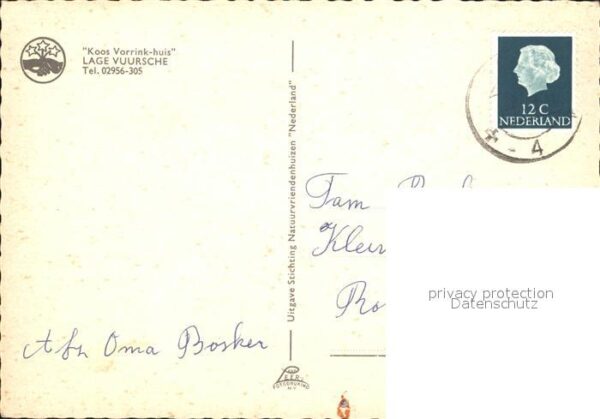 "Koos Vorrink-huis"
LAGE VUURSCHE
Tel. 02956-305
Uitgave Stichting Natuurvriendenhuizen "Nederland"
12 C
NEDERLAND
4
Fam
Klein
privacy protection
Datenschutz
Afz Oma Bosker
FOTODRUKIND
N.V.